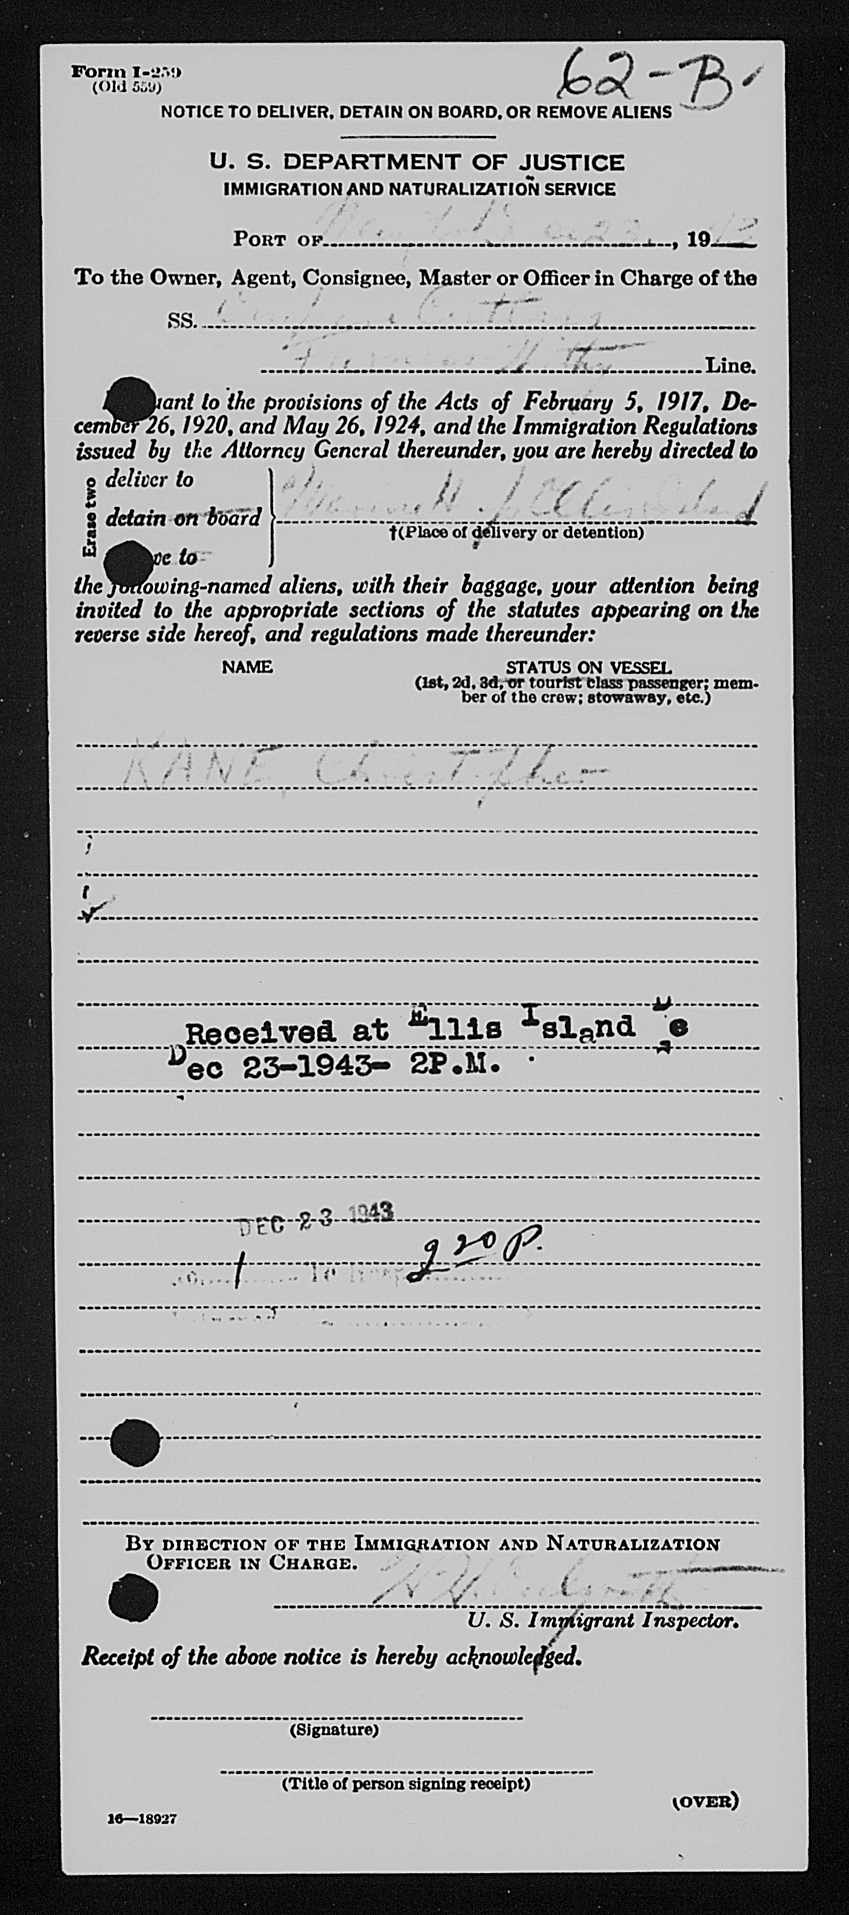 Form I-259
(Old 559)
62-B
NOTICE TO DELIVER, DETAIN ON BOARD, OR REMOVE ALIENS
U. S. DEPARTMENT OF JUSTICE
IMMIGRATION AND NATURALIZATION SERVICE
PORT OF New York Dec 23, 1943
To the Owner, Agent, Consignee, Master or Officer in Charge of the
SS. Empire
Furness Withy Line.
uant to the provisions of the Acts of February 5, 1917, De-
cember 26, 1920, and May 26, 1924, and the Immigration Regulations
issued by the Attorney General thereunder, you are hereby directed to
Erase two
deliver to
detain on board
ve to
Ellis Island
†(Place of delivery or detention)
the following-named aliens, with their baggage, your attention being
invited to the appropriate sections of the statutes appearing on the
reverse side hereof, and regulations made thereunder:
NAME STATUS ON VESSEL
(1st, 2d, 3d, or tourist class passenger; mem-
ber of the crew; stowaway, etc.)
KANE, Christopher
Received at Ellis Island
Dec 23-1943- 2P.M.
DEC 23 1943
1 2 20 P.
BY DIRECTION OF THE IMMIGRATION AND NATURALIZATION
OFFICER IN CHARGE.
U. S. Immigrant Inspector.
Receipt of the above notice is hereby acknowledged.
(Signature)
(Title of person signing receipt)
(OVER)
16—18927